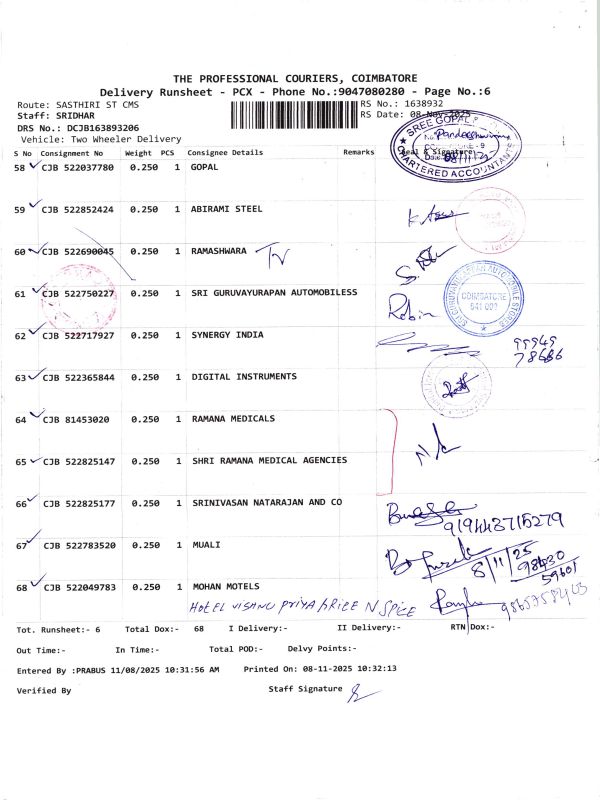 THE PROFESSIONAL COURIERS, COIMBATORE
Delivery Runsheet - PCX - Phone No.:9047080280 - Page No.:6
Route: SASTHIRI ST CMS
RS No.: 1638932
Staff: SRIDHAR
RS Date: 08-Nov-2025
DRS No.: DCJB163893206
Vehicle: Two Wheeler Delivery
SREE GOPAL
CHARTERED ACCOUNTANTS
S No Consignment No Weight PCS Consignee Details Remarks Seal & Signature
58 CJB 522037780 0.250 1 GOPAL
59 CJB 522852424 0.250 1 ABIRAMI STEEL
60 CJB 522690045 0.250 1 RAMASHWARA
61 CJB 522750227 0.250 1 SRI GURUVAYURAPAN AUTOMOBILESS Robin
COIMBATORE
641 002
62 CJB 522717927 0.250 1 SYNERGY INDIA 99949
78686
63 CJB 522365844 0.250 1 DIGITAL INSTRUMENTS
64 CJB 81453020 0.250 1 RAMANA MEDICALS
N/C
65 CJB 522825147 0.250 1 SHRI RAMANA MEDICAL AGENCIES
66 CJB 522825177 0.250 1 SRINIVASAN NATARAJAN AND CO
919443715279
67 CJB 522783520 0.250 1 MUALI
8/11/25
98430
59601
68 CJB 522049783 0.250 1 MOHAN MOTELS
HOTEL VISHNU PRIYA
N SPICE
Tot. Runsheet:- 6 Total Dox:- 68 I Delivery:- II Delivery:- RTN Dox:-
Out Time:- In Time:- Total POD:- Delvy Points:-
Entered By :PRABUS 11/08/2025 10:31:56 AM Printed On: 08-11-2025 10:32:13
Verified By Staff Signature